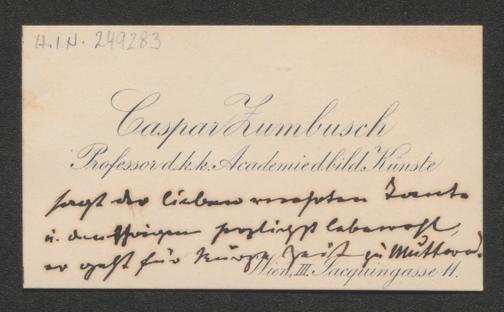 H.I.N. 249283
Caspar Zumbusch
Professor d. k. k. Academie d. bild. Künste
sagt der lieben verehrten Tante
u. den Ihrigen herzlichst lebewohl,
er geht für kurze Zeit zu Mutter
Wien, III. Jacquingasse 11.